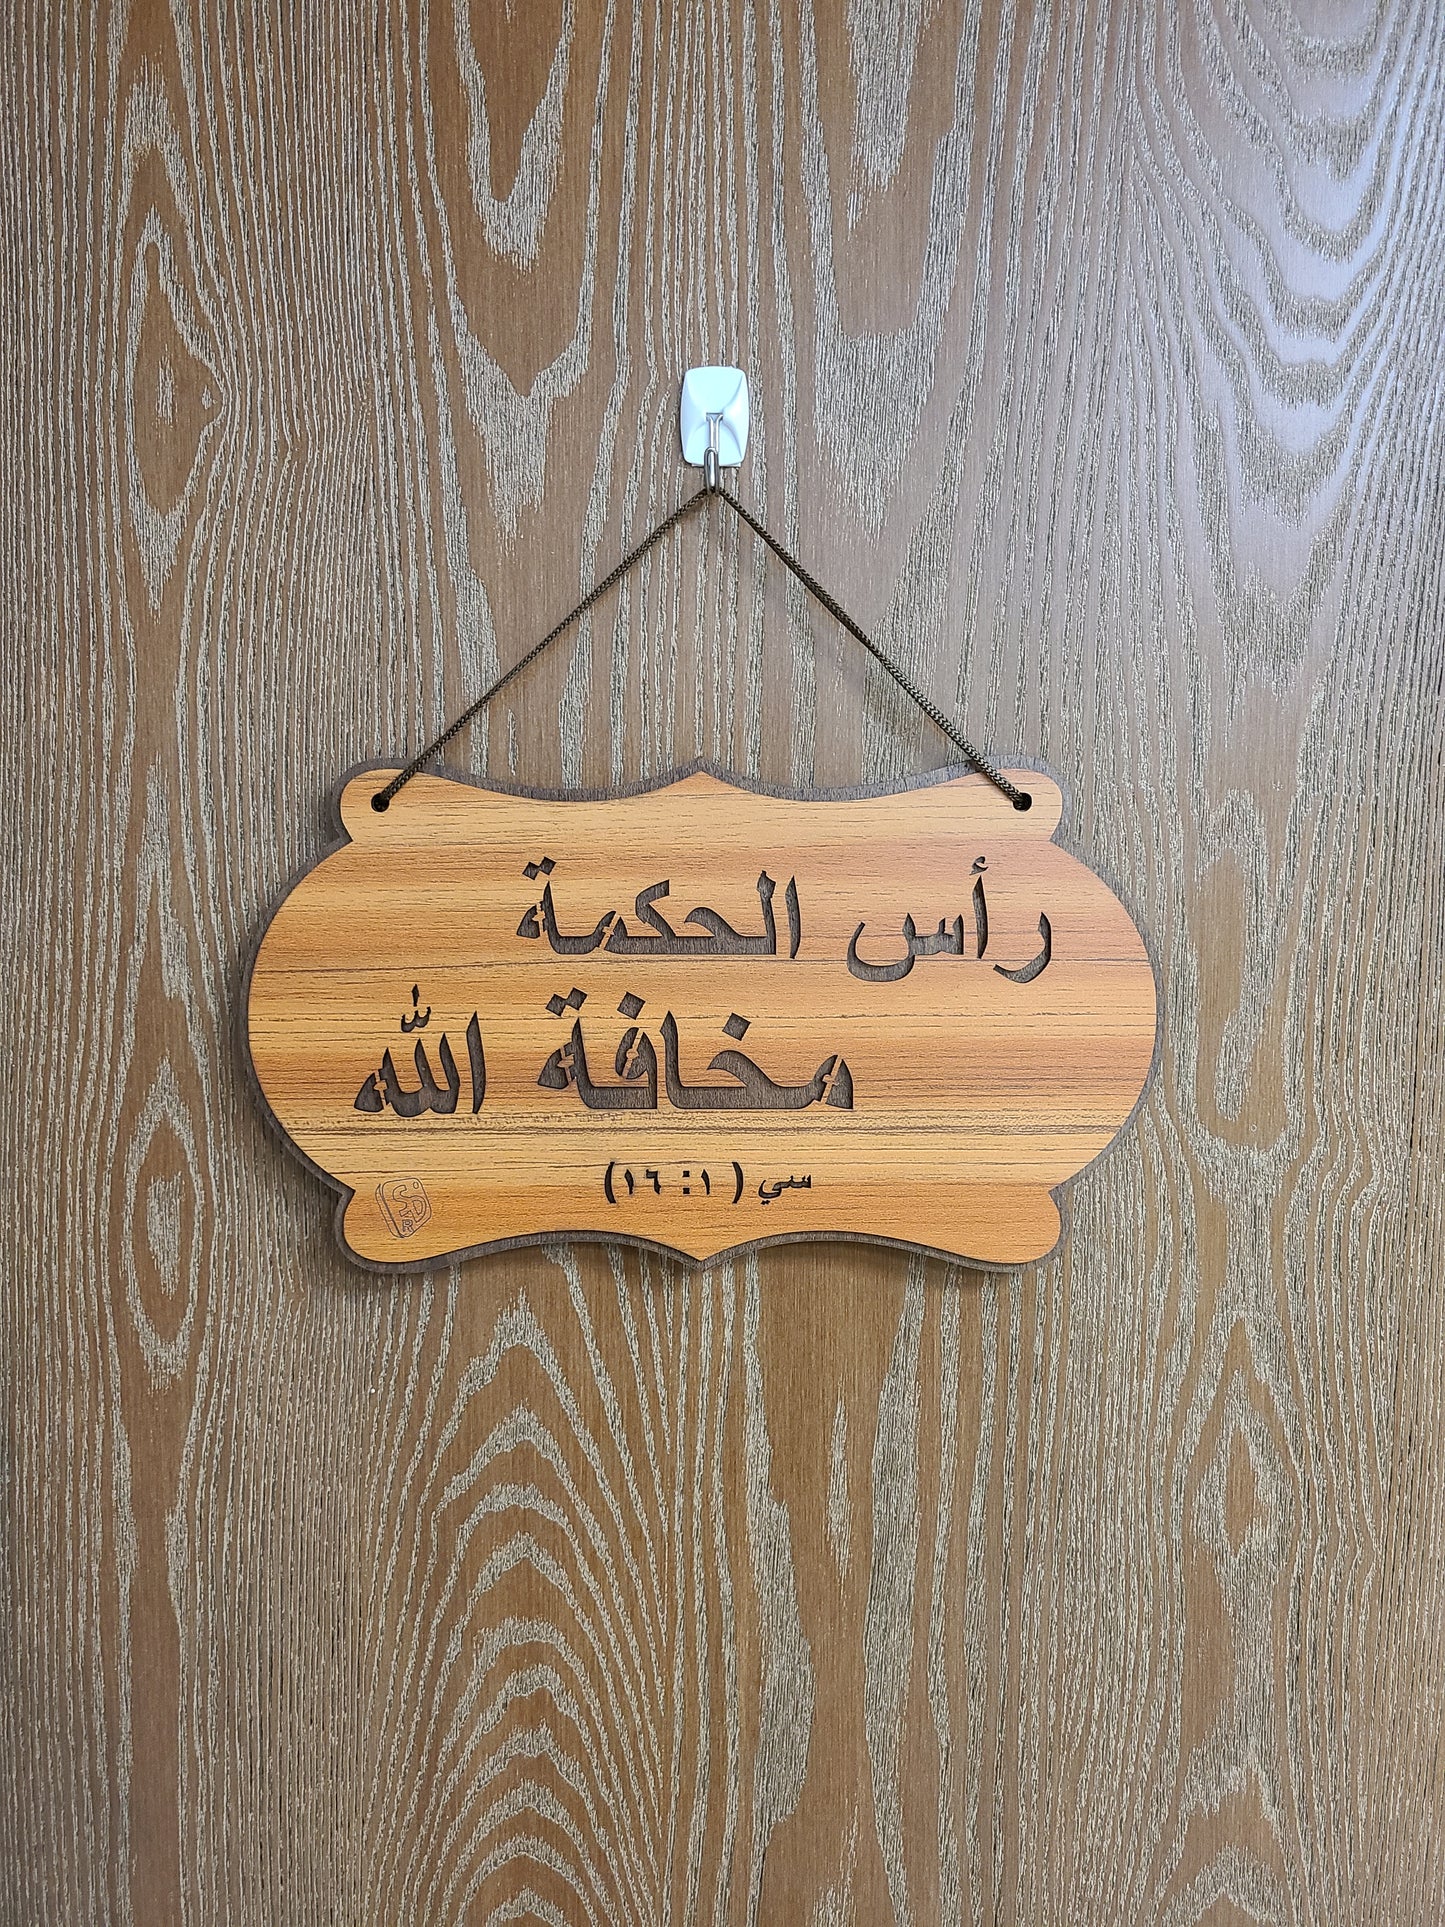 رأس الحكمة
مخافة الله
سي ( ١: ١٦)